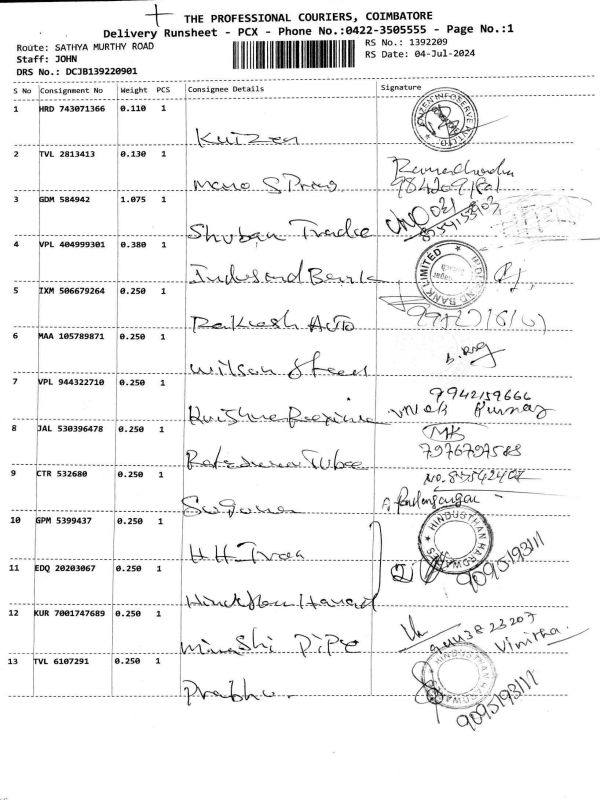 THE PROFESSIONAL COURIERS, COIMBATORE
Delivery Runsheet - PCX - Phone No.:0422-3505555 - Page No.:1
Route: SATHYA MURTHY ROAD
RS No.: 1392209
Staff: JOHN
RS Date: 04-Jul-2024
DRS No.: DCJB139220901
S No Consignment No Weight PCS Consignee Details Signature
1 HRD 743071366 0.110 1
Kuizen
2 TVL 2813413 0.130 1
Mano Spring
3 GDM 584942 1.075 1
8754153103
Shuban Trade
4 VPL 404999301 0.380 1
INDUSIND BANK LIMITED
Indusind Bank
5 IXM 506679264 0.250 1
Prakash Auto
6 MAA 105789871 0.250 1
Wilson Steel
7 VPL 944322710 0.250 1
7942159666
Krishna
Vivek Kumar
8 JAL 530396478 0.250 1
7976797588
Tubee
9 CTR 532680 0.250 1
Suguna
10 GPM 5399437 0.250 1
HINDUSTHAN HARDWARES
H.H. Traa
11 EDQ 20203067 0.250 1
9095193111
12 KUR 7001747689 0.250 1
Minakshi Pipe
Vinitha
13 TVL 6107291 0.250 1
HINDUSTHAN HARDWARES
Prabhu
9095193111